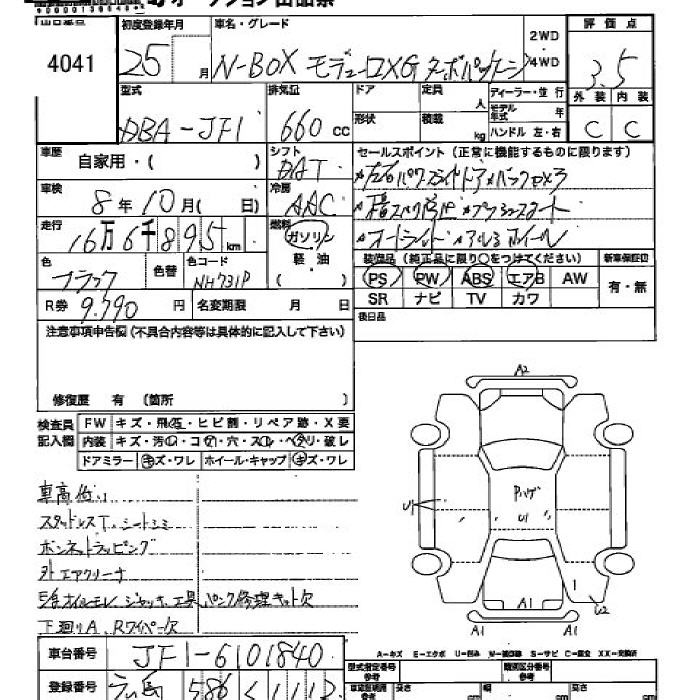 オークション出品票
4041
初度登録年月 25 月
車名・グレード N-BOX モデューロXG ターボパッケージ
2WD
4WD
評価点 3.5
外装 内装
C C
型式 DBA-JF1
排気量 660 cc
ドア 定員 人
形状 積載 kg
ディーラー・並行
モデル年式 年
ハンドル 左・右
車歴 自家用・( )
シフト DAT
車検 8年10月( 日)
冷房 AAC
走行 16万6千895km
燃料 ガソリン
軽・油
( )
セールスポイント(正常に機能するものに限ります)
左右パワスライドドア バックカメラ
プッシュスタート
オートライト アルミホイール
色 ブラック 色替 色コード NH731P
装備品(純正品に限り○をつけてください) 新車保証書
PS PW ABS エアB AW 有・無
SR ナビ TV カワ
R券 9,790 円 名変期限 月 日
後日品
注意事項申告欄(不具合内容等は具体的に記入して下さい)
修復歴 有 (箇所 )
検査員記入欄
FW キズ・飛石・ヒビ割・リペア跡・X要
内装 キズ・汚・コゲ・穴・スレ・ヘタリ・破レ
ドアミラー キズ・ワレ ホイール・キャップ キズ・ワレ
車高低い
スタッドレスT、シートシミ
ボンネットラッピング
外エアクリーナ
オイルモレ、ジャッキ、工具、パンク修理キット欠
下廻りA、Rワイパー欠
A2
Pハゲ
U1
U1
U2
A1
A1 A1
A-キズ E-エクボ U-凹み W-補修跡 S-サビ C-腐食 XX-交換済
車台番号 JF1-6101840
型式指定番号 参考
類別区分番号 参考
登録番号 広島 586
長さ cm 幅 cm 高さ cm